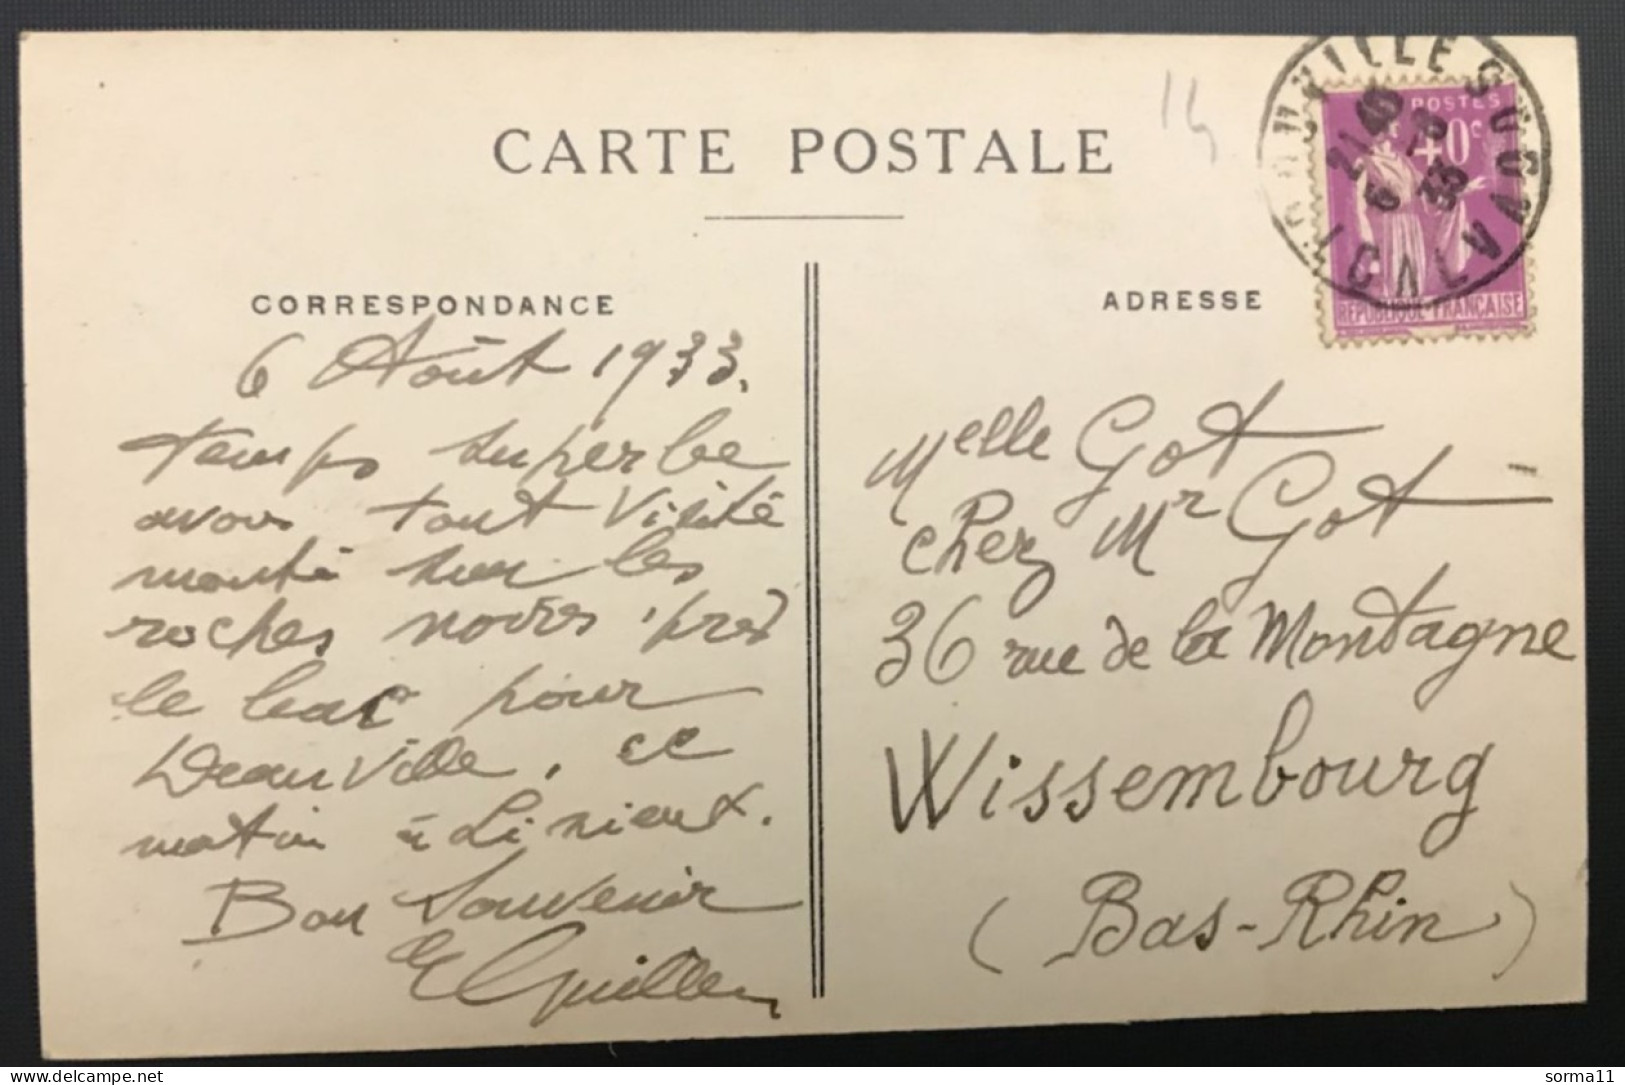 CARTE POSTALE
14
CORRESPONDANCE
ADRESSE
POSTES
40c
RÉPUBLIQUE FRANÇAISE
TROUVILLE S
CALVADOS
21 40
6 -8
33
6 Août 1933.
temps superbe
avons tout visité
monté sur les
roches noires, pris
le bac pour
Deauville, ce
matin à Lisieux.
Bon Souvenir
Melle Got
chez Mr Got
36 rue de la Montagne
Wissembourg
(Bas-Rhin)
delcampe.net
sorma11